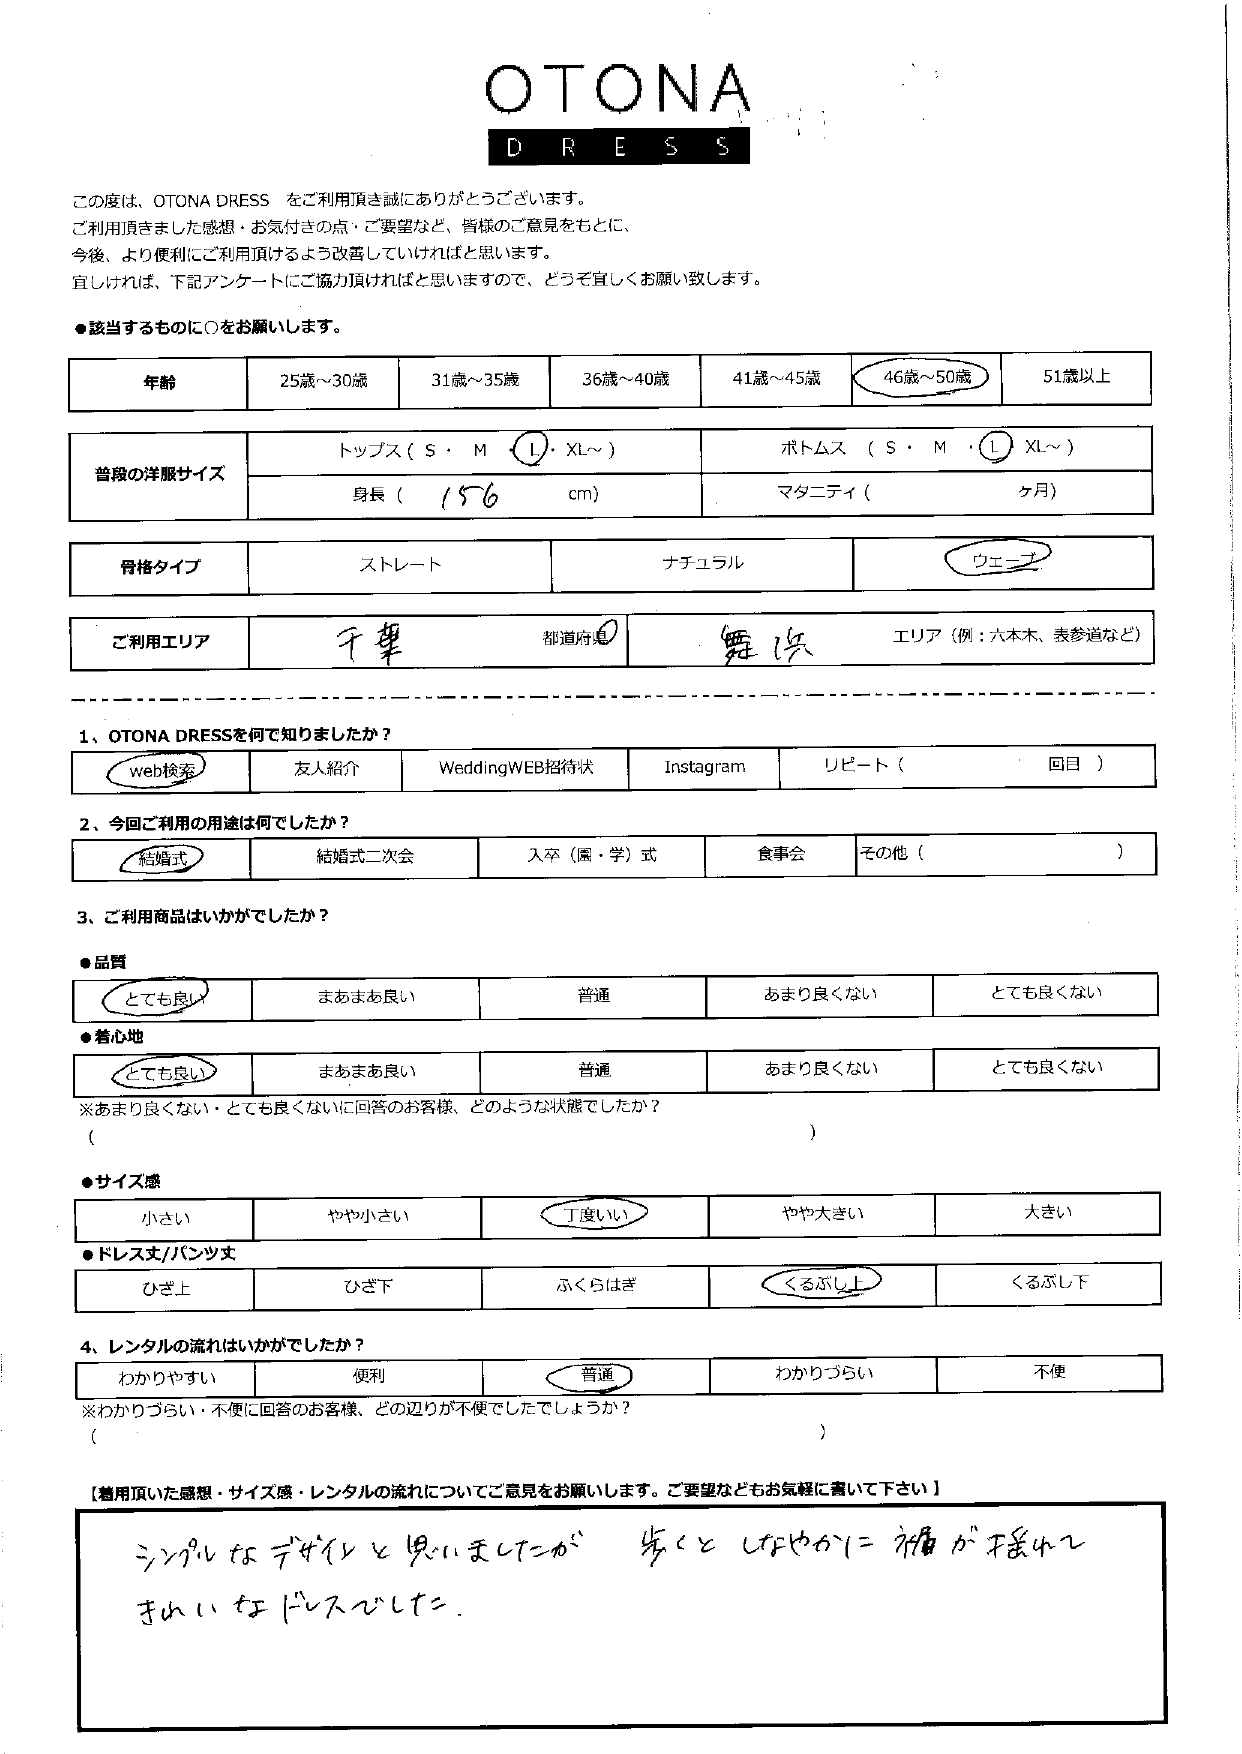 OTONA
DRESS
この度は、OTONA DRESS　をご利用頂き誠にありがとうございます。
ご利用頂きました感想・お気付きの点・ご要望など、皆様のご意見をもとに、
今後、より便利にご利用頂けるよう改善していければと思います。
宜しければ、下記アンケートにご協力頂ければと思いますので、どうぞ宜しくお願い致します。
●該当するものに○をお願いします。
年齢 25歳～30歳 31歳～35歳 36歳～40歳 41歳～45歳 46歳～50歳 51歳以上
普段の洋服サイズ トップス ( S ・ M ・ L ・ XL～ ) ボトムス ( S ・ M ・ L ・ XL～ )
身長 ( 156 cm) マタニティ ( ヶ月)
骨格タイプ ストレート ナチュラル ウェーブ
ご利用エリア 千葉 都道府県 舞浜 エリア（例：六本木、表参道など）
1、OTONA DRESSを何で知りましたか？
web検索 友人紹介 WeddingWEB招待状 Instagram リピート（ 回目 ）
2、今回ご利用の用途は何でしたか？
結婚式 結婚式二次会 入卒（園・学）式 食事会 その他（ ）
3、ご利用商品はいかがでしたか？
●品質
とても良い まあまあ良い 普通 あまり良くない とても良くない
●着心地
とても良い まあまあ良い 普通 あまり良くない とても良くない
※あまり良くない・とても良くないに回答のお客様、どのような状態でしたか？
( )
●サイズ感
小さい やや小さい 丁度いい やや大きい 大きい
●ドレス丈/パンツ丈
ひざ上 ひざ下 ふくらはぎ くるぶし上 くるぶし下
4、レンタルの流れはいかがでしたか？
わかりやすい 便利 普通 わかりづらい 不便
※わかりづらい・不便に回答のお客様、どの辺りが不便でしたでしょうか？
( )
【着用頂いた感想・サイズ感・レンタルの流れについてご意見をお願いします。ご要望などもお気軽に書いて下さい】
シンプルなデザインと思いましたが 歩くと しなやかに 裾が揺れて
きれいなドレスでした.